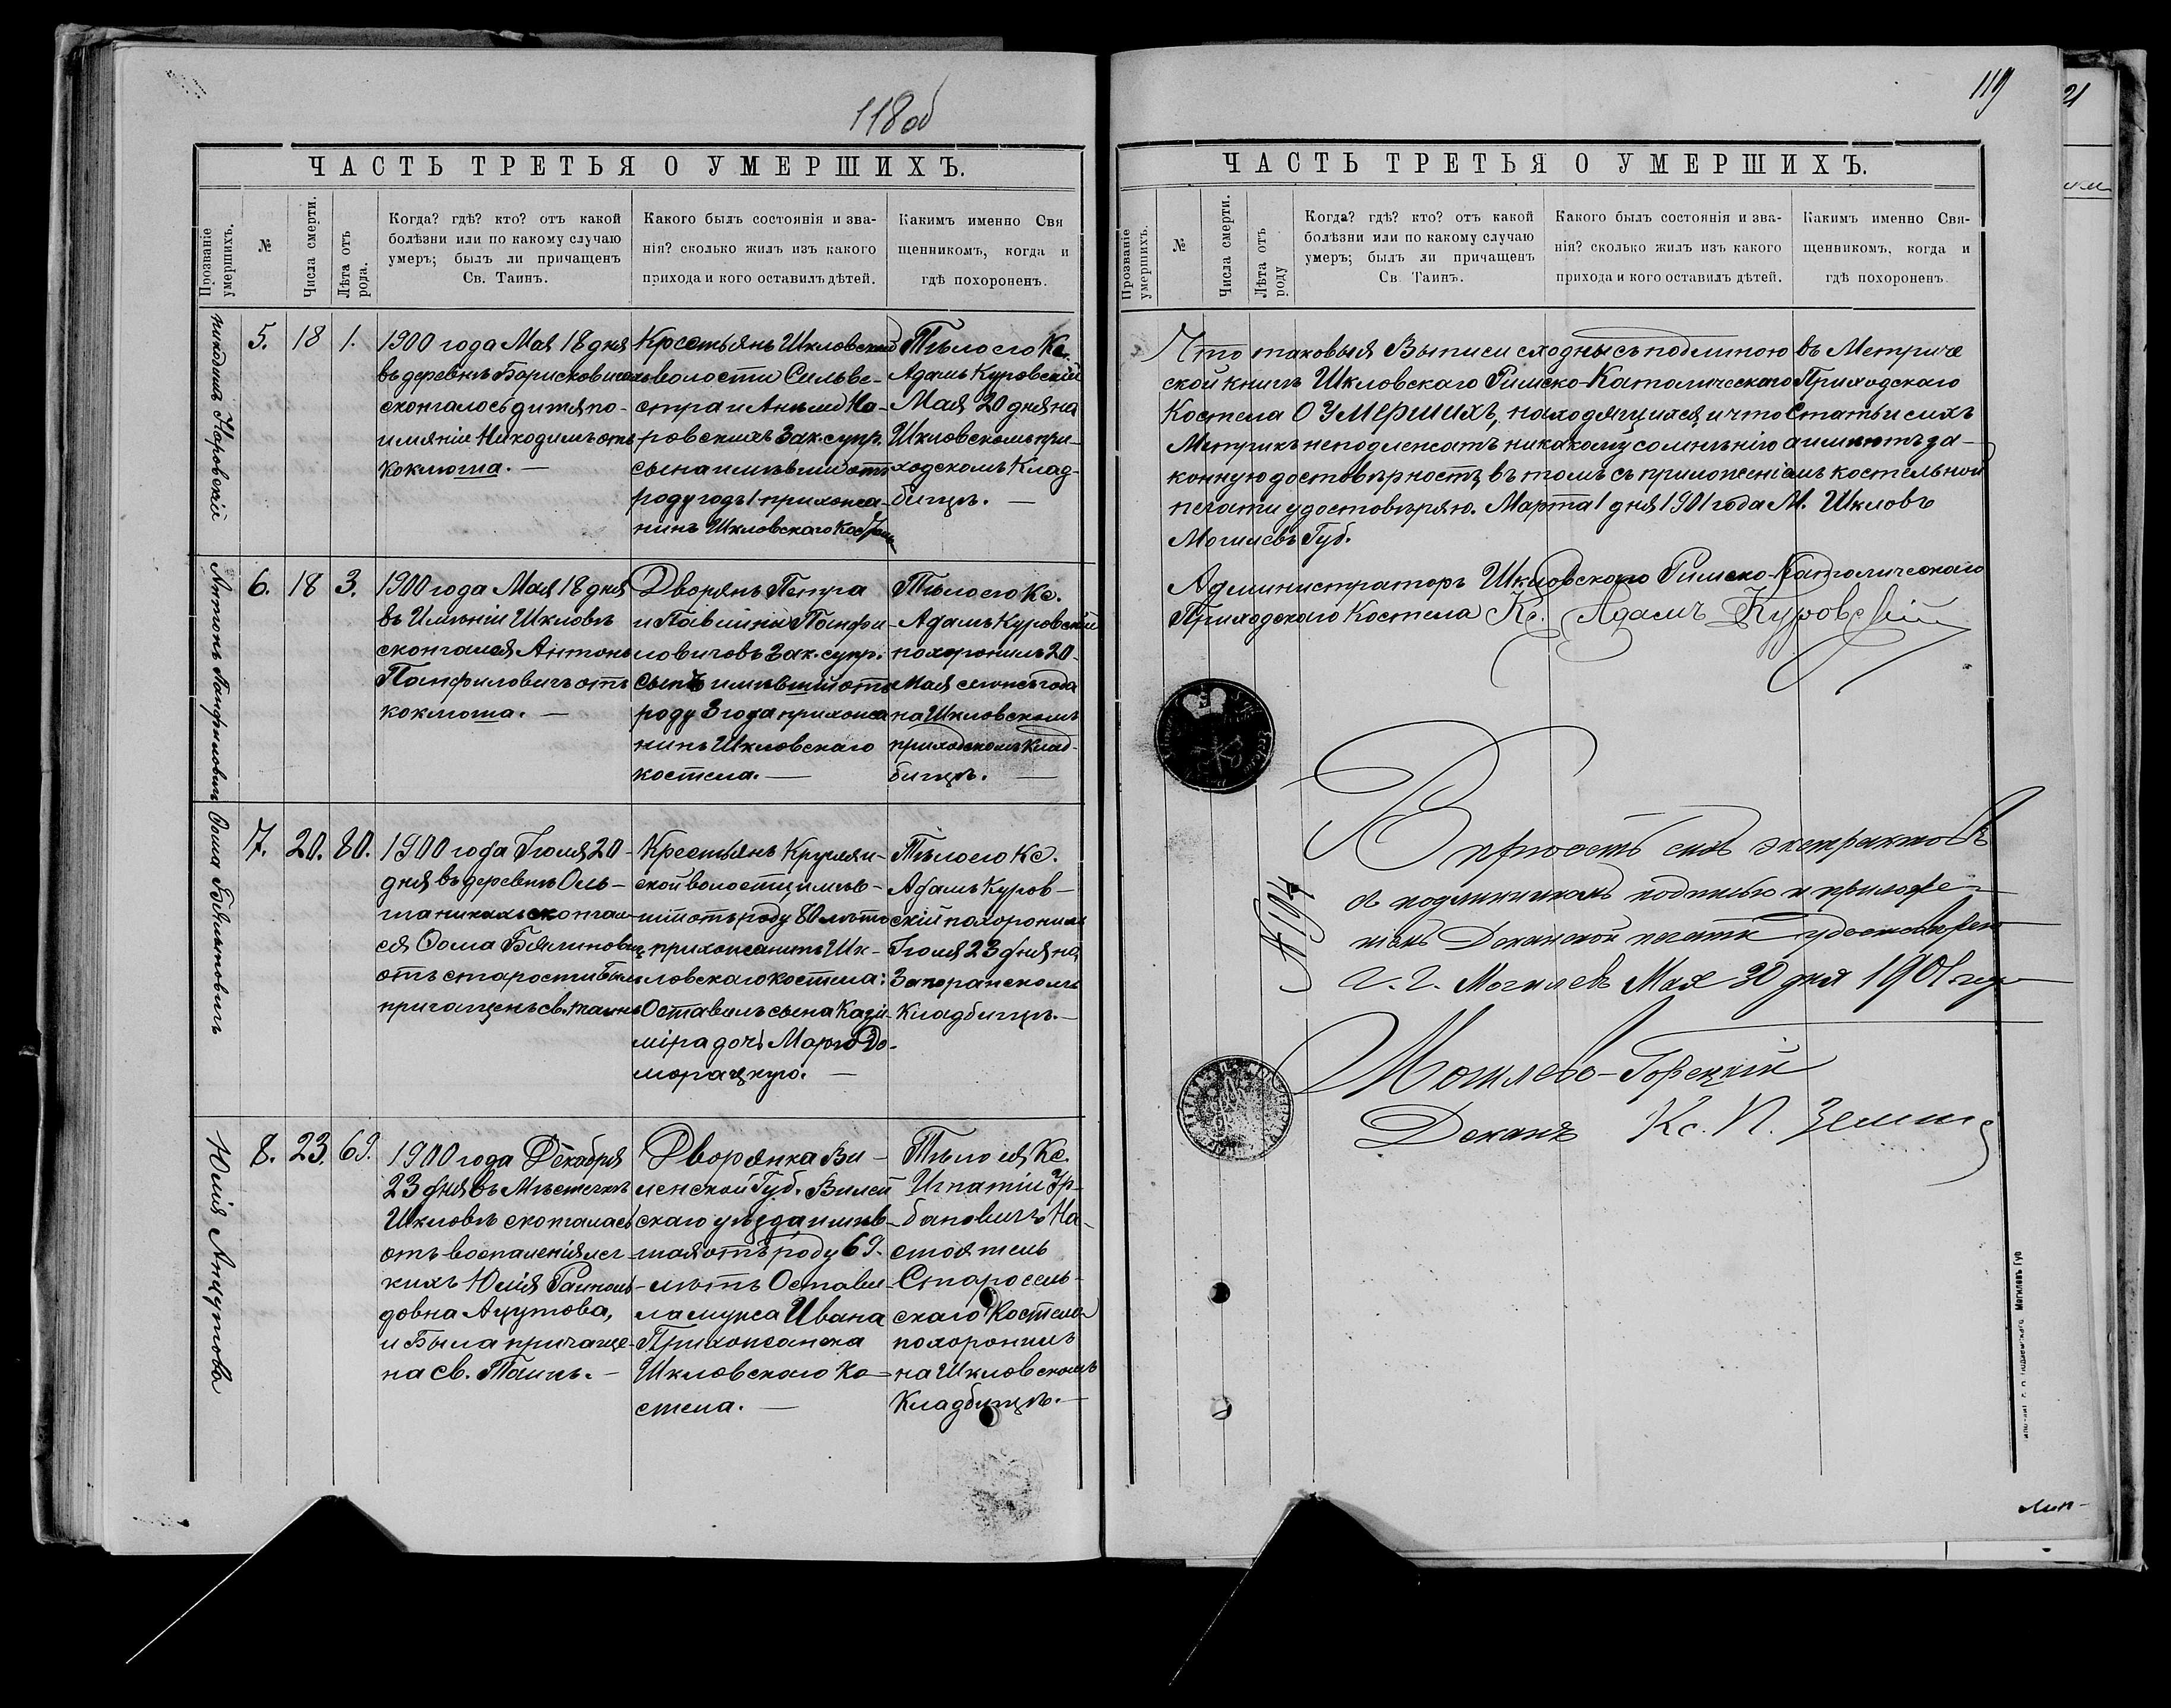 118 об
ЧАСТЬ ТРЕТЬЯ О УМЕРШИХЪ.
Прозваніе умершихъ.
№
Числа смерти.
Лѣта отъ рода.
Когда? гдѣ? кто? отъ какой
болѣзни или по какому случаю
умеръ; былъ ли причащенъ
Св. Таинъ.
Какого былъ состоянія и зва-
нія? сколько жилъ изъ какого
прихода и кого оставилъ дѣтей.
Какимъ именно Свя
щенникомъ, когда и
гдѣ похороненъ.
Никодимъ Норовскій
5.
18
1.
1900 года Мая 18 дня
въ деревнѣ Борисковичахъ
скончалось дитя по-
имяніи Никодимъ отъ
коклюша. —
Крестьянъ Шкловской
волости Сильве-
стра и Анели Но-
ровскихъ Зак. супр.
сынъ имѣвшій отъ
роду годъ 1 прихожа-
нинъ Шкловскаго Костела
Тѣло его Кс.
Адамъ Куровскій
Мая 20 дня на
Шкловскомъ при-
ходскомъ Клад-
бищѣ. —
Антонъ Панфиловичъ
6.
18
3.
1900 года Мая 18 дня
въ Имѣніи Шкловъ
скончался Антонъ
Панфиловичъ отъ
коклюша. —
Дворянъ Петра
и Павлины Панфи-
ловичовъ Зак. супр.
сынъ имѣвшій отъ
роду 3 года прихожа
нинъ Шкловскаго
костела. —
Тѣло его Кс.
Адамъ Куровскій
похоронилъ 20
Мая сегожъ года
на Шкловскомъ
приходскомъ Клад-
бищѣ. —
Ѳома Бѣлиновичъ
7.
20.
80.
1900 года Іюля 20
дня въ деревнѣ Оль-
шаникахъ скончал-
ся Ѳома Бялиновичъ
отъ старости Былъ
причащенъ св. таинъ
Крестьянъ Круглян-
ской волости, имѣв-
шій отъ роду 80 лѣтъ
прихожанинъ Шк-
ловскаго костела:
Оставилъ сына Кази-
міра дочь Марію До-
морацкую. —
Тѣло его Кс.
Адамъ Куров-
скій похоронилъ
Іюля 23 дня на
Кладбищѣ. —
Юлія Ацутова
8.
23.
69.
1900 года Декабря
23 дня въ Мѣстечкѣ
Шкловѣ скончалась
отъ воспаленія лег-
кихъ Юлія
довна Ацутова,
и Была причаще-
на св. Таинъ. —
Дворянка Ви-
ленской Губ. Вилей
скаго уѣзда имѣв-
шая отъ роду 69.
лѣтъ Остави-
ла мужа Ивана
Прихожанка
Шкловскаго Ко-
стела. —
Тѣло ея Кс.
Игнатій Ур-
бановичъ На-
стоятель
Старосель-
скаго Костела
похоронилъ
на Шкловскомъ
Кладбищѣ. —
119
ЧАСТЬ ТРЕТЬЯ О УМЕРШИХЪ.
Прозваніе умершихъ.
№
Числа смерти.
Лѣта отъ роду
Когда? гдѣ? кто? отъ какой
болѣзни или по какому случаю
умеръ; былъ ли причащенъ
Св. Таинъ.
Какого былъ состоянія и зва-
нія? сколько жилъ изъ какого
прихода и кого оставилъ дѣтей.
Какимъ именно Свя-
щенникомъ, когда и
гдѣ похороненъ.
Что таковыя Выписи сходны съ подлиною въ Метриче
ской книгѣ Шкловскаго Римско-Католическаго Приходскаго
Костела О Умершихъ, находящихся, и что Статьи сихъ
Метрикъ неподлежатъ никакому сомнѣнію а имѣютъ за-
конную достовѣрность, въ томъ съ приложеніемъ костельной
печати удостовѣряю. Марта 1 дня 1901 года М. Шкловъ
Могилевъ Губ.
Администраторъ Шкловскаго Римско-Католическаго
Приходскаго Костела Кс. Адамъ Куровскій
Вѣрность сихъ экстрактовъ
съ подлинникомъ подписью и приложе-
ніемъ Деканской печати удостовѣряю
Г. Г. Могилевъ Мая 30 дня 1901 года
Могилево-Горецкій
Деканъ Кс. П.